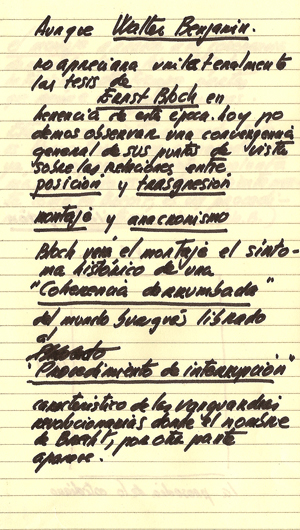 Aunque Walter Benjamin.
no apreciara unilateralmente
las tesis de
Ernst Bloch en
herencia de esta época. hoy po
demos observar una convergencia
general de sus puntos de vista
sobre las relaciones entre
posición y trasgresión
montaje y anacronismo
Bloch verá el montaje el sínto-
ma histórico de una
"Coherencia derrumbada"
del mundo burgués librado
al
"Procedimiento de interrupción"
característico de las vanguardias
revolucionarias donde el nombre
de Brecht, por otra parte
aparece.